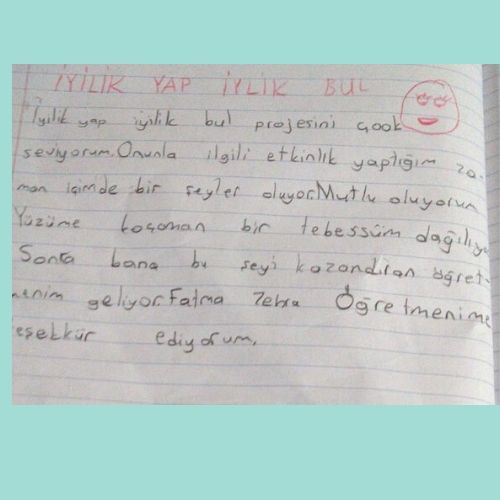 İYİLİK YAP İYLİK BUL
İyilik yap iyilik bul projesini çook
seviyorum.Onunla ilgili etkinlik yaptığım za-
man içimde bir şeyler oluyor.Mutlu oluyorum
Yüzüme koçaman bir tebessüm dağılıyo
Sonra bana bu şeyi kazandıran öğret-
menim geliyor.Fatma Zehra Öğretmenime
eşekkür ediyorum.